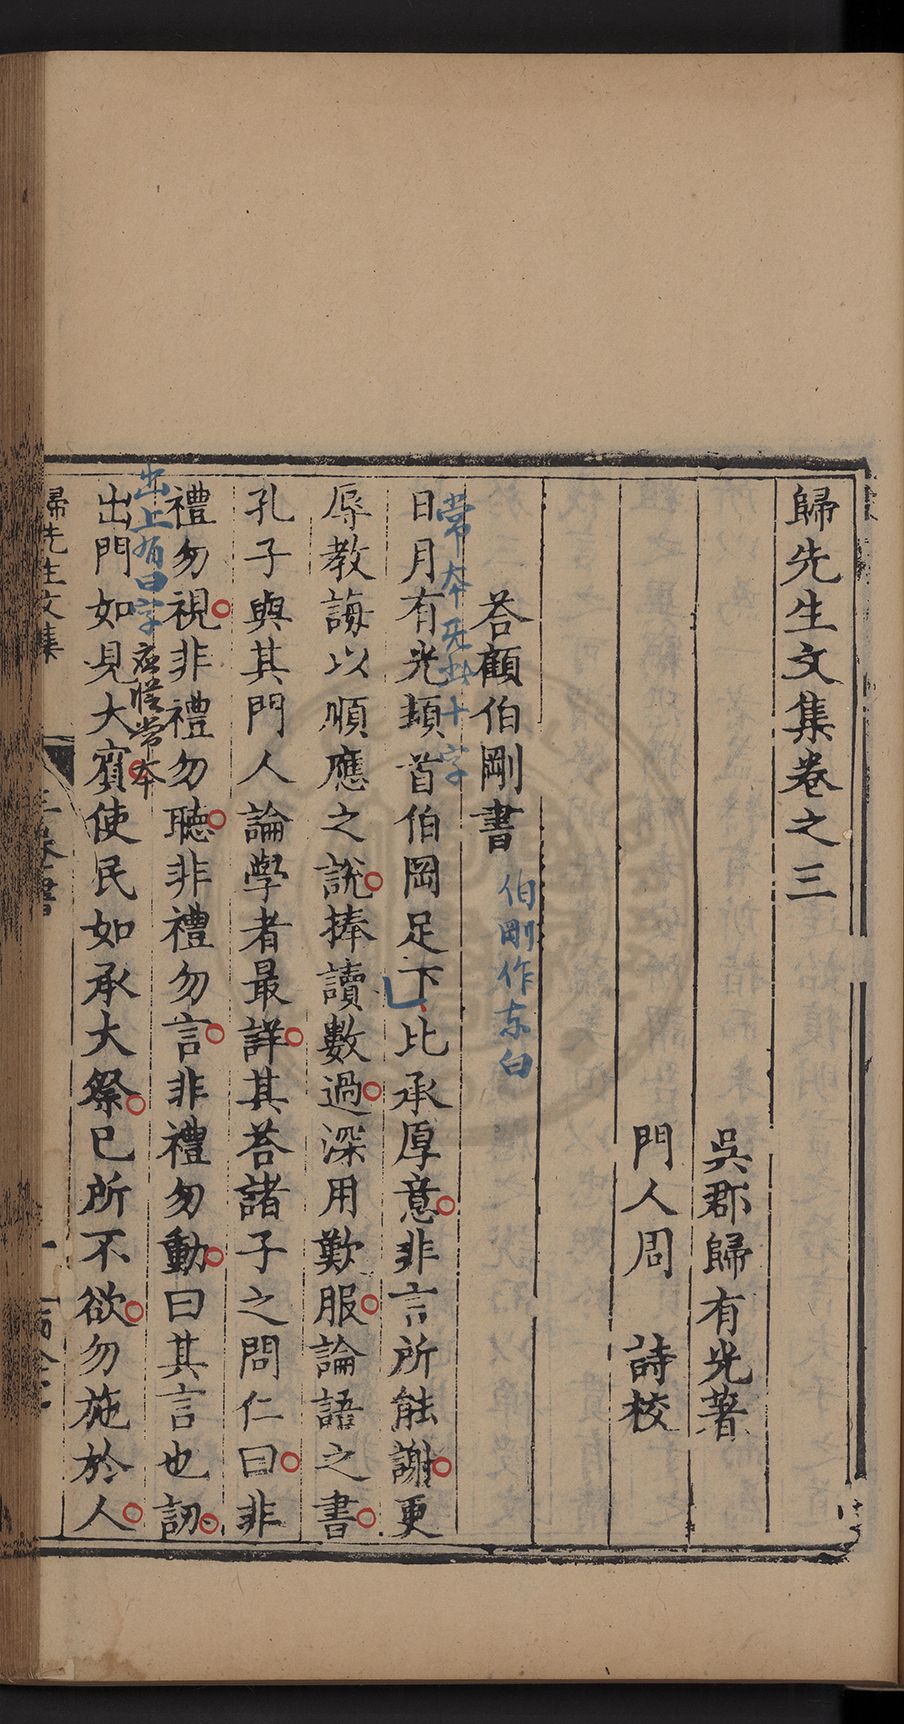 歸先生文集卷之三
吳郡歸有光著
門人周　詩校
荅顧伯剛書
伯剛作东白
常本无此十字
日月有光頓首伯岡足下比承厚意非言所能謝更
辱教誨以順應之說捧讀數過深用歎服論語之書
孔子與其門人論學者最詳其荅諸子之問仁曰非
禮勿視非禮勿聽非禮勿言非禮勿動曰其言也訒
出上有曰字
應從常本
出門如見大賓使民如承大祭已所不欲勿施於人
歸先生文集